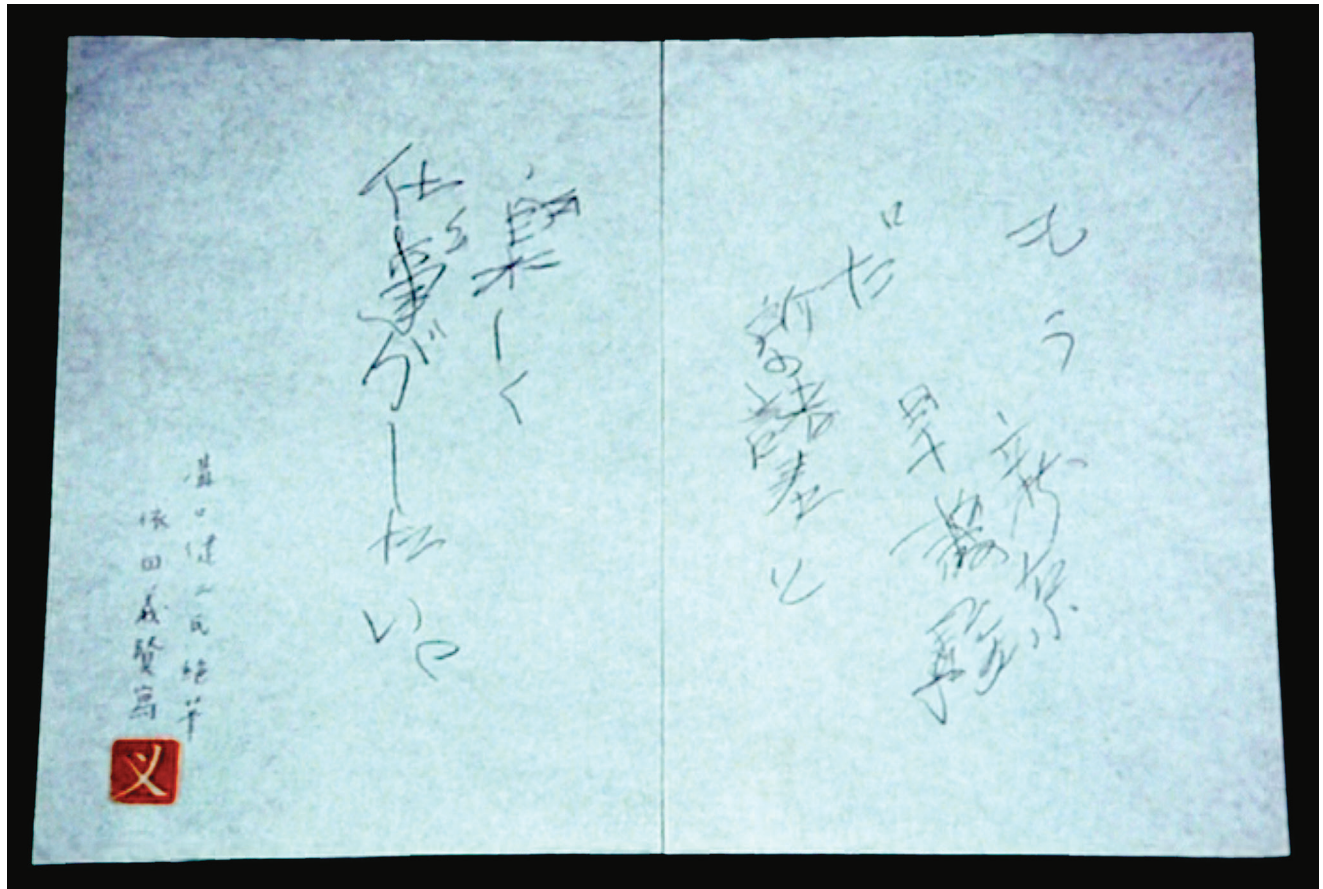 もう
新涼
だ
早く撮影
所の諸君と
楽しく
仕事がしたい。
溝口健二氏絶筆
依田義賢写
义